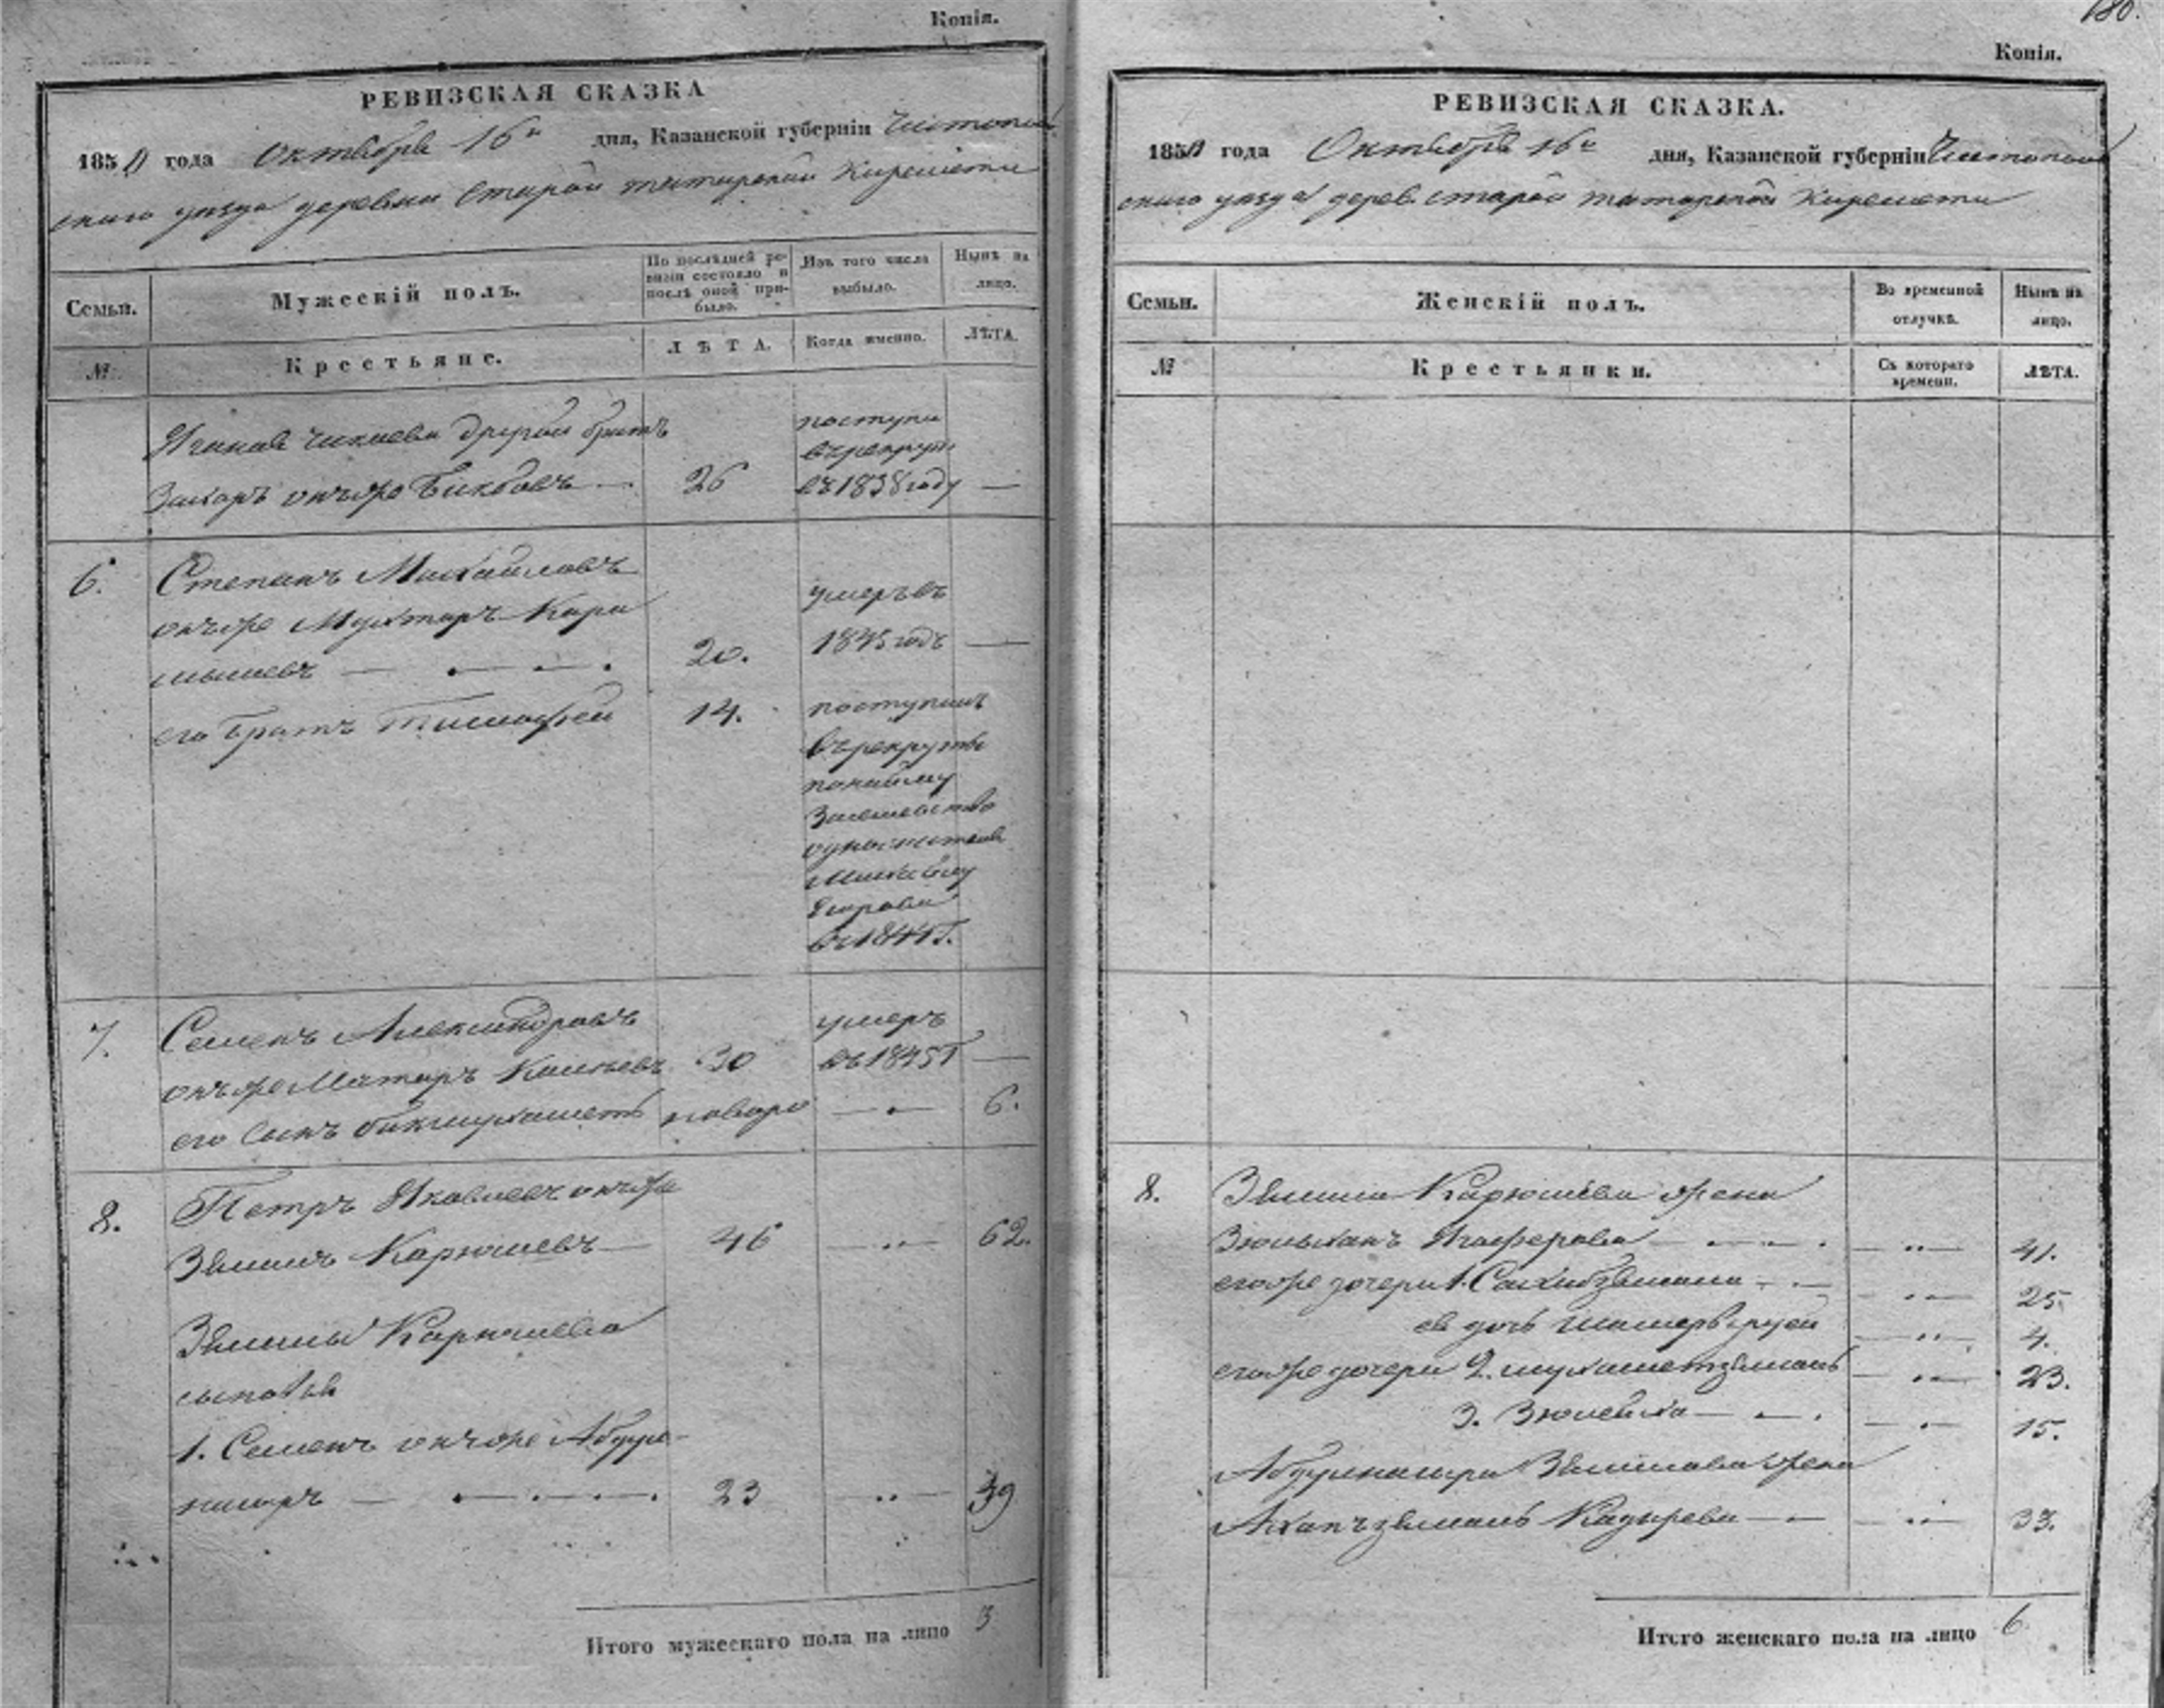 Копія.
РЕВИЗСКАЯ СКАЗКА
1850 года Октября 16го дня, Казанской губерніи Чистополь
скаго уезда деревни Старой татарской Киремети
Семьи.
Мужескій полъ.
По послѣдней ре-
визіи состояло и
послѣ оной при-
было.
Изъ того числа
выбыло.
Нынѣ на
лицо.
№
Крестьяне.
ЛѢТА.
Когда именно.
ЛѢТА.
другой братъ
Захаръ онъже Бикбовъ — 26
поступи
въ рекруты
въ 1838 году —
6. Степанъ Михайловъ
онъже Мухтаръ Кара
мышевъ — 20.
умеръ въ
1845 годъ —
его братъ Тимофей 14.
поступилъ
въ рекруты
по найму
Михайлу
Егорова
7. Семенъ Александровъ
онъже 30
умеръ
въ 1845 г —
его сынъ бикмухаметъ — 6.
8. Петръ Яковлевъ онъже
Зелимъ Карюшевъ — 46 — 62.
Зелимы Карюшева
сыновья
1. Семенъ онъже Абдул-
насыръ — 23 39
Итого мужескаго пола на лицо 3
180.
Копія.
РЕВИЗСКАЯ СКАЗКА.
1850 года Октября 16го дня, Казанской губерніи Чистополь
скаго уезда дерев. старой татарской Киремети
Семьи.
Женскій полъ.
Во временной
отлучкѣ.
Нынѣ на
лицо.
№
Крестьянки.
Съ котораго
времени.
ЛѢТА.
8. Зелима Карюшева жена
Зюльханъ Ягаферова — 41.
егоже дочери 1. Сахибзямала — 25.
ея дочь 4.
егоже дочери 2. мухаметзямаль 23.
3. — 15.
Абдулнасыра Зелимова жена
Аханъзямаль Кадырева — 33.
Итого женскаго пола на лицо 6